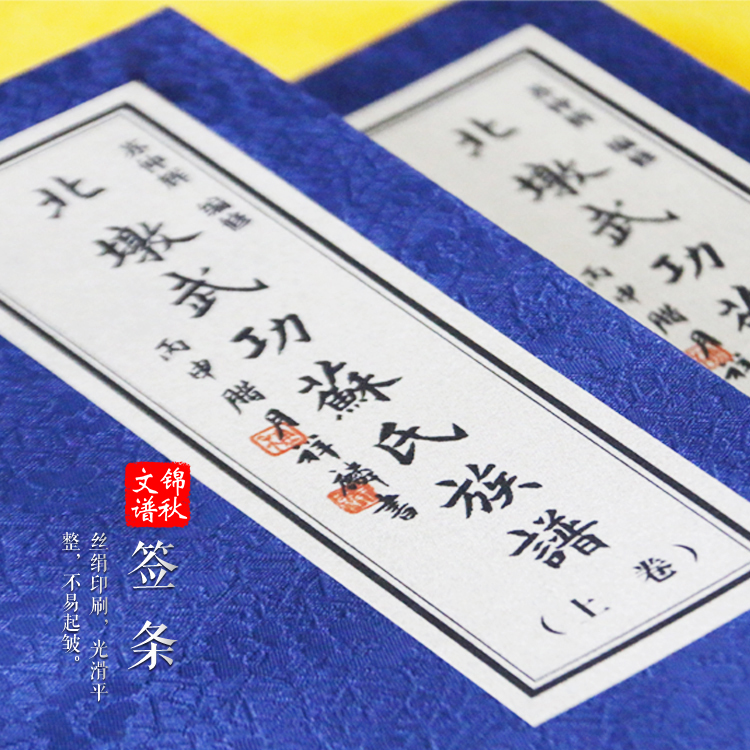 北墩武功蘇氏族譜
（上卷）
苏坤辉 编修
丙申腊月祥麟書
北墩武功
编修
丙申腊月祥
锦秋
文谱
签条
丝绢印刷，光滑平
整，不易起皱。